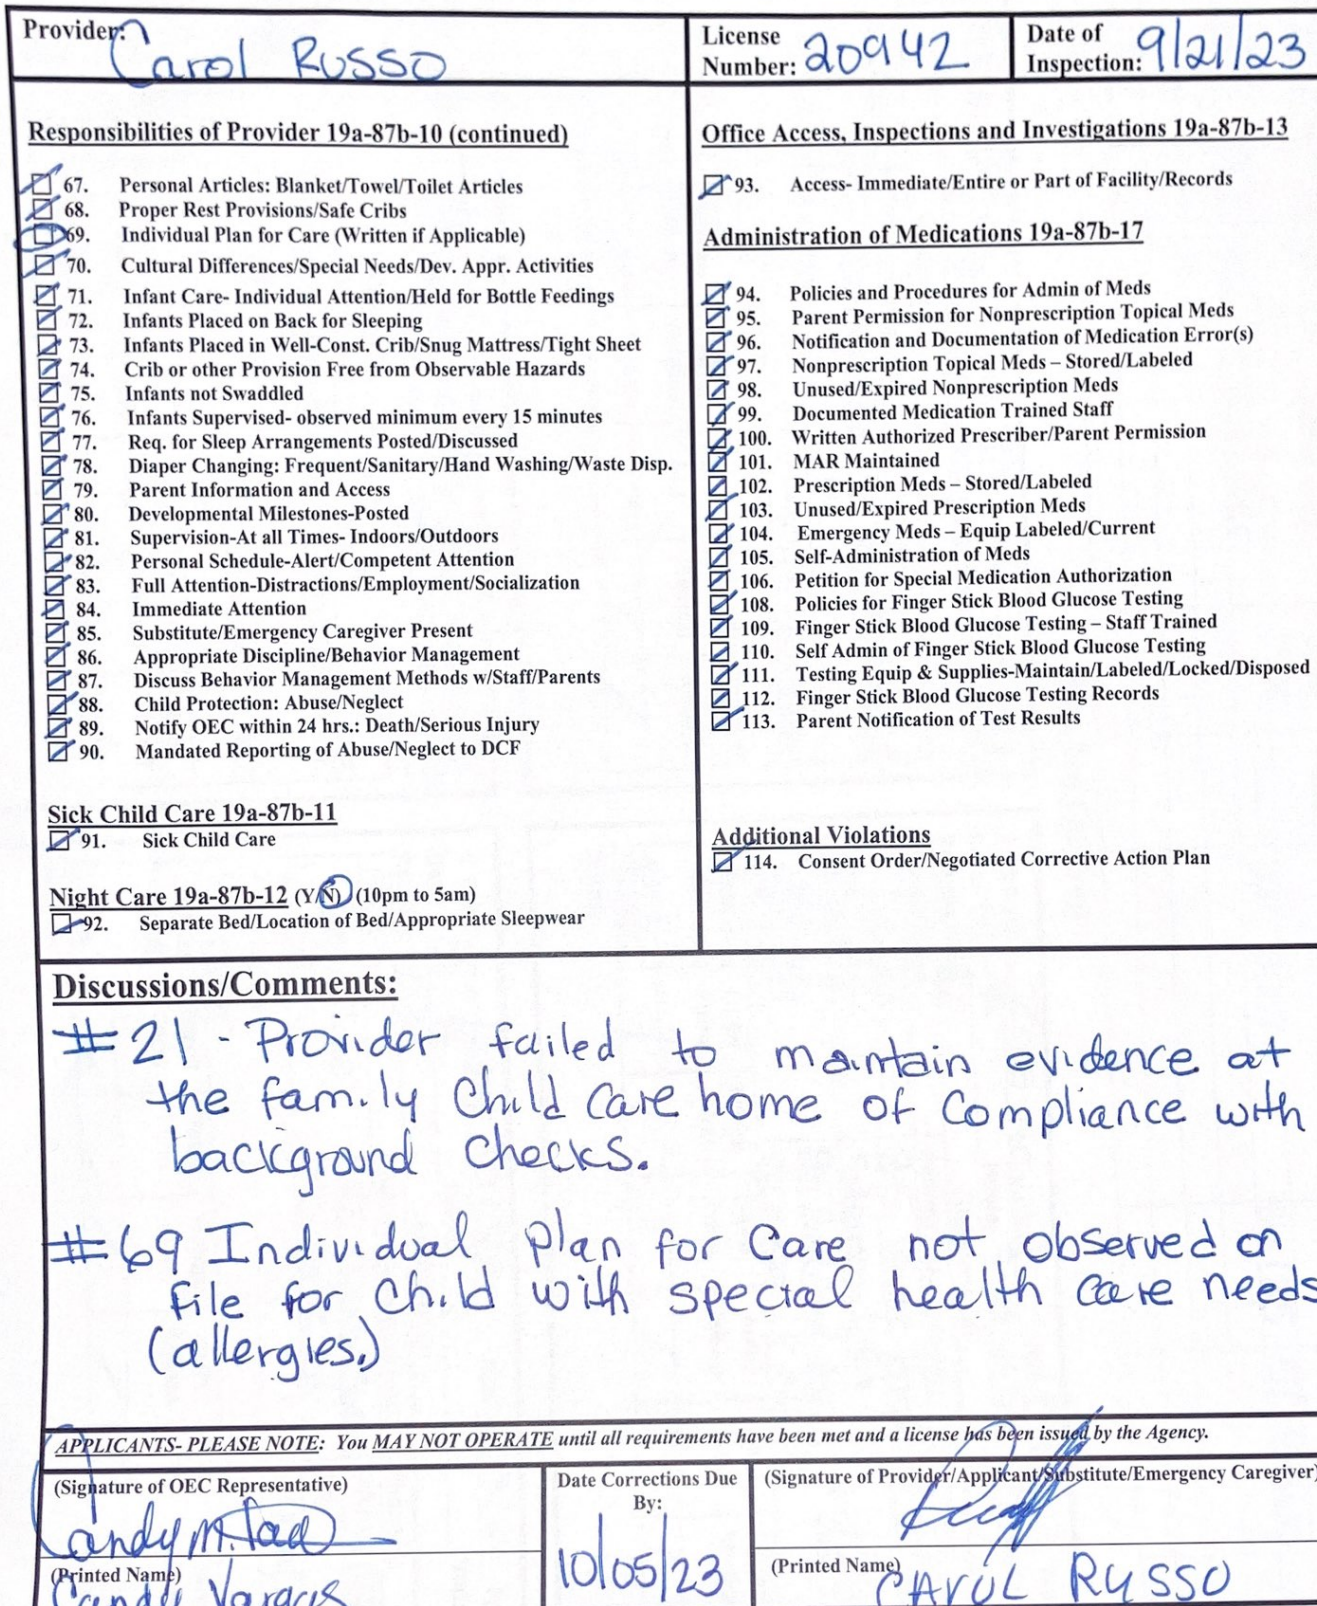 Provider: Carol Russo
License Number: 20942
Date of Inspection: 9/21/23
Responsibilities of Provider 19a-87b-10 (continued)
67. Personal Articles: Blanket/Towel/Toilet Articles
68. Proper Rest Provisions/Safe Cribs
69. Individual Plan for Care (Written if Applicable)
70. Cultural Differences/Special Needs/Dev. Appr. Activities
71. Infant Care- Individual Attention/Held for Bottle Feedings
72. Infants Placed on Back for Sleeping
73. Infants Placed in Well-Const. Crib/Snug Mattress/Tight Sheet
74. Crib or other Provision Free from Observable Hazards
75. Infants not Swaddled
76. Infants Supervised- observed minimum every 15 minutes
77. Req. for Sleep Arrangements Posted/Discussed
78. Diaper Changing: Frequent/Sanitary/Hand Washing/Waste Disp.
79. Parent Information and Access
80. Developmental Milestones-Posted
81. Supervision-At all Times- Indoors/Outdoors
82. Personal Schedule-Alert/Competent Attention
83. Full Attention-Distractions/Employment/Socialization
84. Immediate Attention
85. Substitute/Emergency Caregiver Present
86. Appropriate Discipline/Behavior Management
87. Discuss Behavior Management Methods w/Staff/Parents
88. Child Protection: Abuse/Neglect
89. Notify OEC within 24 hrs.: Death/Serious Injury
90. Mandated Reporting of Abuse/Neglect to DCF
Sick Child Care 19a-87b-11
91. Sick Child Care
Night Care 19a-87b-12 (Y/N) (10pm to 5am)
92. Separate Bed/Location of Bed/Appropriate Sleepwear
Office Access, Inspections and Investigations 19a-87b-13
93. Access- Immediate/Entire or Part of Facility/Records
Administration of Medications 19a-87b-17
94. Policies and Procedures for Admin of Meds
95. Parent Permission for Nonprescription Topical Meds
96. Notification and Documentation of Medication Error(s)
97. Nonprescription Topical Meds – Stored/Labeled
98. Unused/Expired Nonprescription Meds
99. Documented Medication Trained Staff
100. Written Authorized Prescriber/Parent Permission
101. MAR Maintained
102. Prescription Meds – Stored/Labeled
103. Unused/Expired Prescription Meds
104. Emergency Meds – Equip Labeled/Current
105. Self-Administration of Meds
106. Petition for Special Medication Authorization
108. Policies for Finger Stick Blood Glucose Testing
109. Finger Stick Blood Glucose Testing – Staff Trained
110. Self Admin of Finger Stick Blood Glucose Testing
111. Testing Equip & Supplies-Maintain/Labeled/Locked/Disposed
112. Finger Stick Blood Glucose Testing Records
113. Parent Notification of Test Results
Additional Violations
114. Consent Order/Negotiated Corrective Action Plan
Discussions/Comments:
#21 - Provider failed to maintain evidence at
the family Child Care home of Compliance with
background checks.
#69 Individual Plan for Care not observed on
file for Child with special health care needs
(allergies.)
APPLICANTS- PLEASE NOTE: You MAY NOT OPERATE until all requirements have been met and a license has been issued by the Agency.
(Signature of OEC Representative)
(Printed Name)
Candy Vargas
Date Corrections Due
By:
10/05/23
(Signature of Provider/Applicant/Substitute/Emergency Caregiver)
(Printed Name) CAROL RUSSO